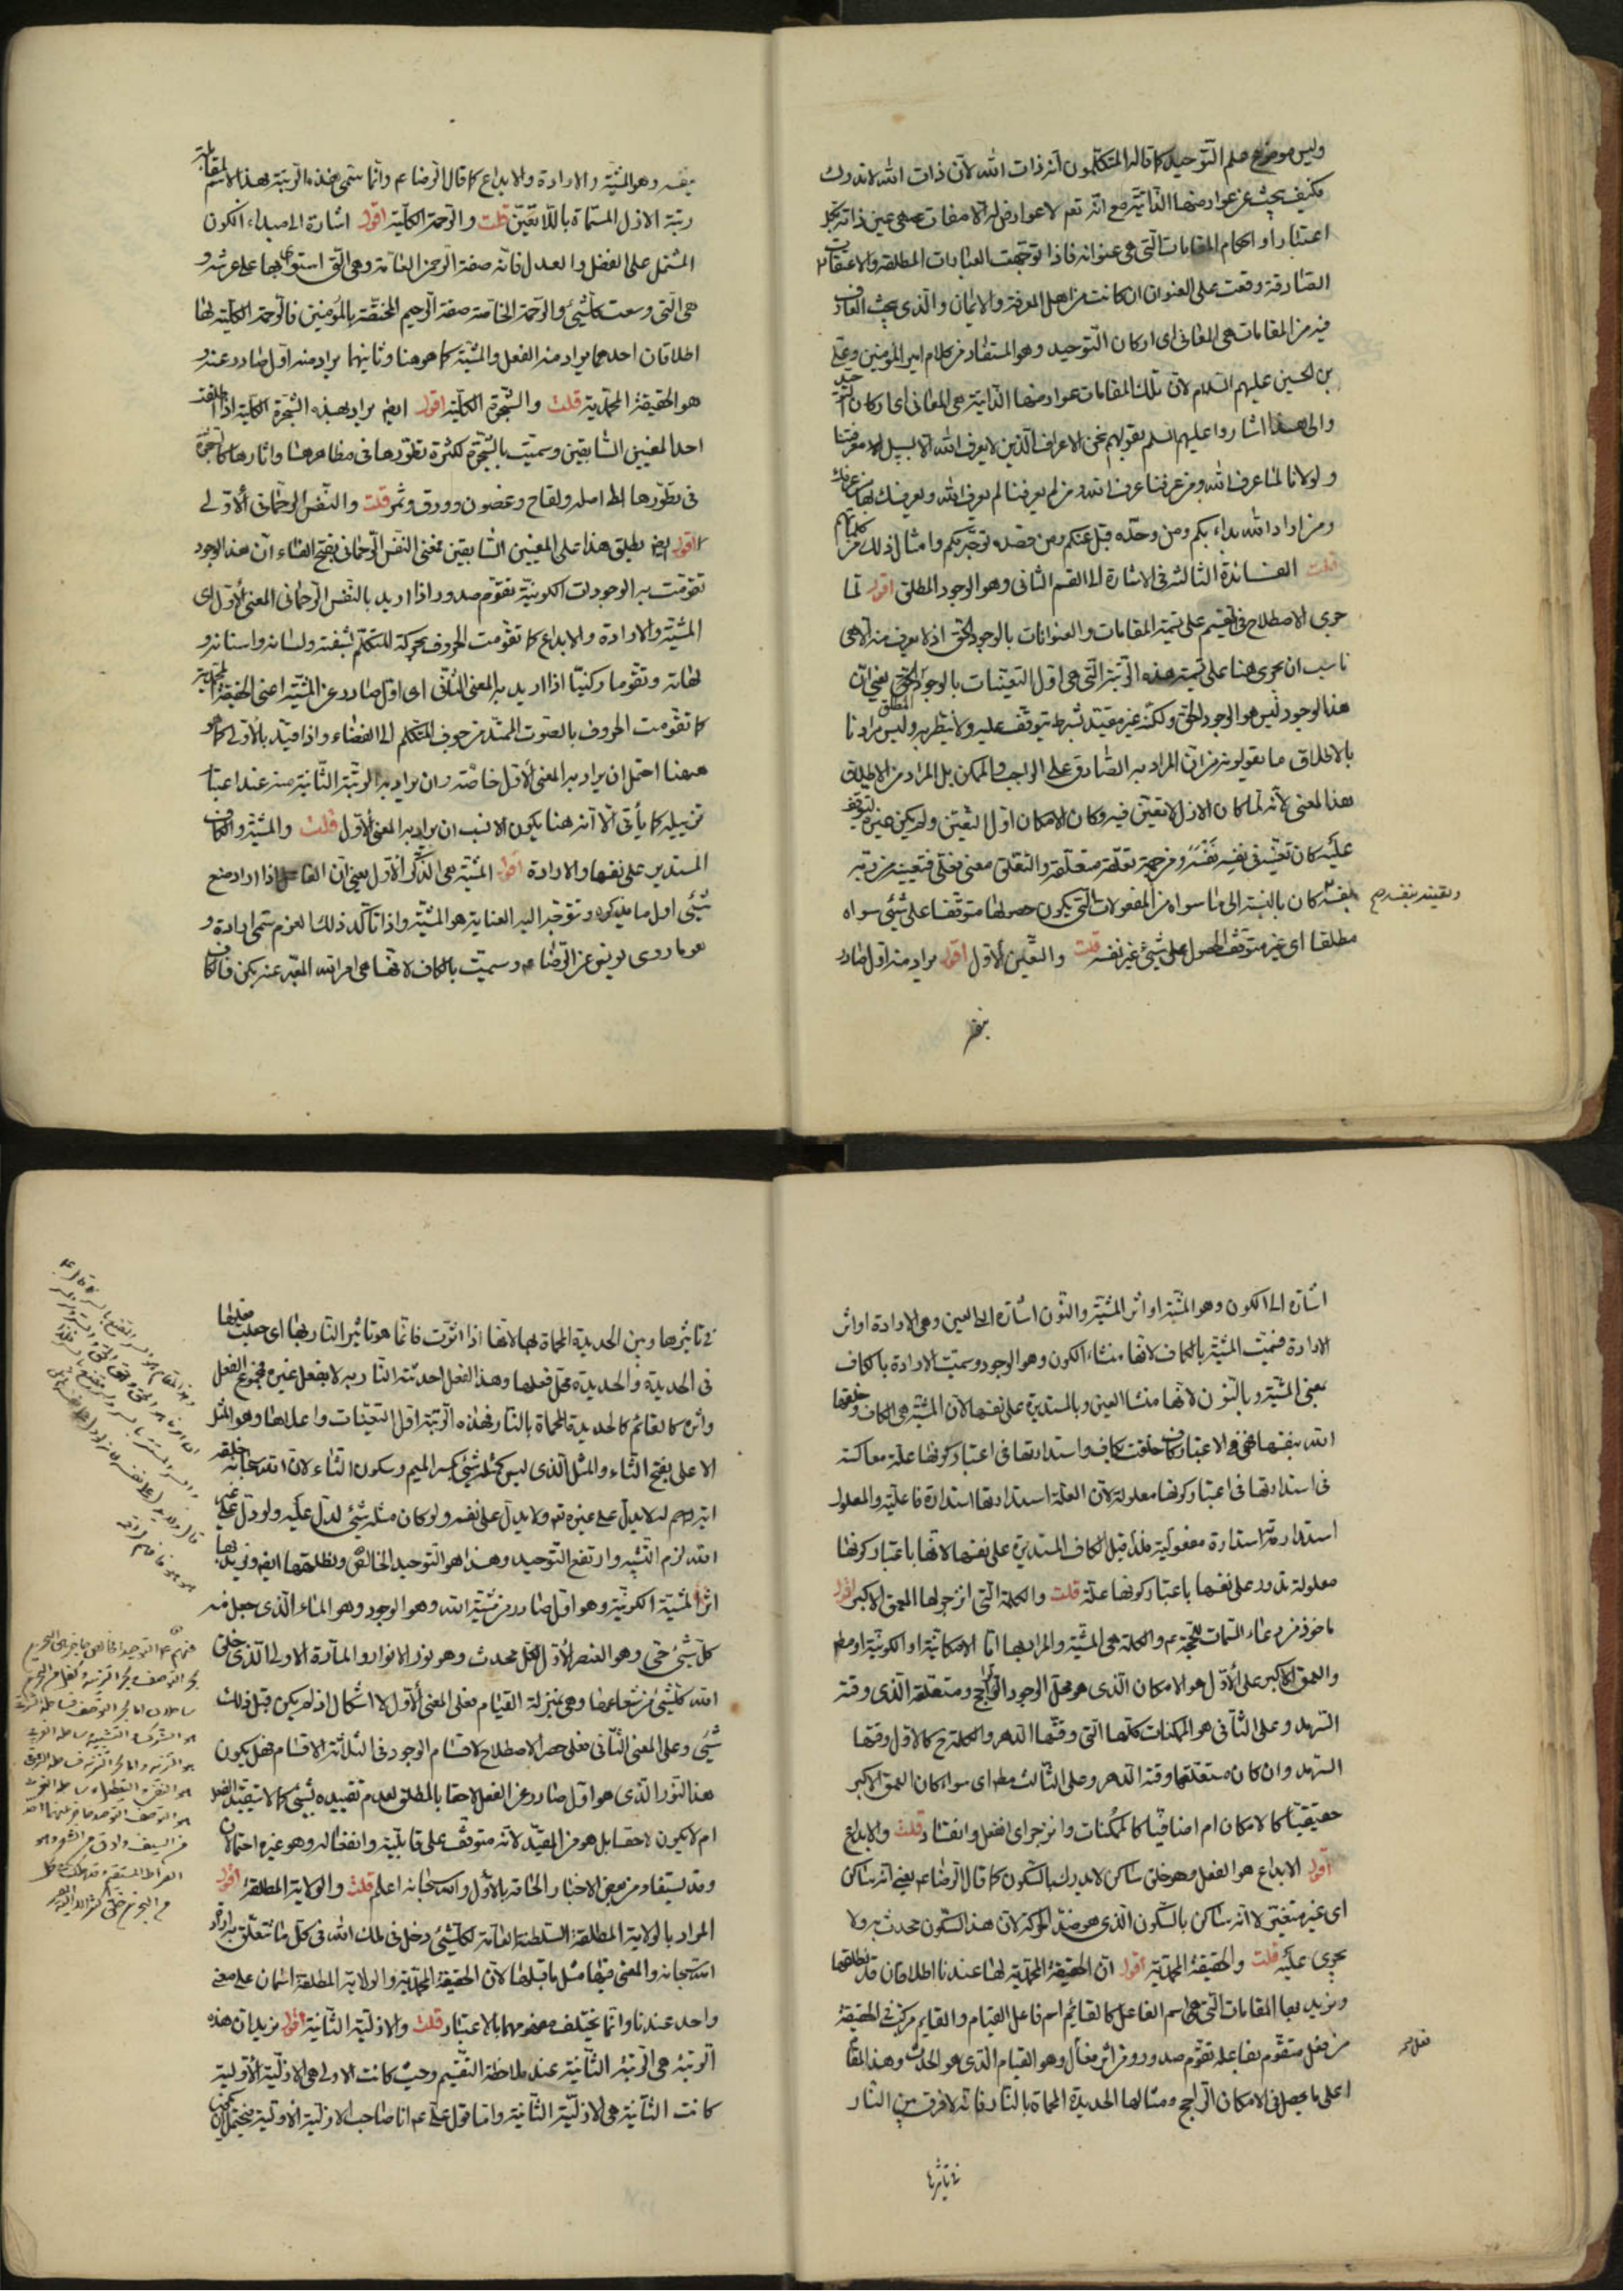 وليس موضوع علم التوحيد كما قاله المتكلمون انه ذات الله لان ذات الله لا تدرك
فكيف يبحث عن عوارضها الذاتية مع انه تعم لا عوارض له الا صفات هى عين ذاته بكل
اعتبار او احكام المقامات التى هى عنوانه فاذا توجهت العبادات المطلقة والاعتقادات
الصادقة وقعت على العنوان ان كانت من اهل المعرفة والايمان والذى يبحث العارف
فيه من المقامات هى المعانى اى اركان التوحيد وهو المستفاد من كلام امير المؤمنين وعلى
بن الحسين عليهم السلام لان تلك المقامات عوارضها الذاتية هى المعانى اى اركان التوحيد
والى هذا اشاروا عليهم السلم بقولهم نحن الاعراف الذين لا يعرف الله الا بسبيل معرفتنا
ولولانا لما عرف الله ومن عرفنا عرف الله ومن لم يعرفنا لم يعرف الله ويعرفك بها من عرفك
ومن اراد الله بداء بكم ومن وحده قبل عنكم ومن قصده توجه بكم وامثال ذلك من كلماتهم
قلت الفائدة الثالثة فى الاشارة الى القسم الثانى وهو الوجود المطلق اقول لما
جرى الاصطلاح فى التقسيم على تسمية المقامات والعنوانات بالوجود الحق اذ لا يعرف منه الا هى
ناسب ان يجرى هنا على تسمية هذه الرتبة التى هى اول التعينات بالوجود المطلق يعنى ان
هذا الوجود ليس هو الوجود الحق ولكنه غير مقيد بشرط يتوقف عليه ولا ينتظر به وليس مرادنا
بالاطلاق ما يقولونه من ان المراد به الصادق على الواجب والممكن بل المراد من الاطلاق
هذا المعنى لانه لما كان الازل لا تعين فيه وكان الامكان اول التعين ولم يكن غيره ليتوقف
عليه كان تعينه فى نفسه بنفسه ومن جهة تعلقه متعلقه والتعلق معنى فعلى فتعينه من رتبه
وتقييده بنفسه صح
بنفسه كان بالنسبة الى ما سواه من المفعولات التى يكون حصولها متوقفا على شئ سواه
مطلقا اى غير متوقف الحصول على شئ غير نفسه قلت والتعين الاول اقول يراد منه اول صادر
بنفسه
بنفسه وهو المشية والارادة والابداع كما قال الرضا عم وانما سمى هذه الرتبة بهذا الاسم لمقابلة
رتبة الازل المسماة باللاتعين قلت والرحمة الكلية اقول اشارة الى مبداء الكون
المشتمل على الفضل والعدل فانه صفة الرحمن العامة وهى التى استوى بها على عرشه و
هى التى وسعت كلشئ والرحمة الخاصة صفة الرحيم المختصة بالمؤمنين فالرحمة الكلية لها
اطلاقان احدهما يراد منه الفعل والمشية كما هو هنا وثانيهما يراد منه اول صادر عنه و
هو الحقيقة المحمدية قلت والشجرة الكلية اقول ايضا يراد بهذه الشجرة الكلية اذا اطلقت
احد المعنيين السابقين وسميت بالشجرة لكثرة تطورها فى مظاهرها واثارها كالشجرة
فى تطورها الى اصل ولقاح وغصون وورق وثمر قلت والنفس الرحمانى الاولى
اقول ايضا يطلق هذا على المعنيين السابقين فمعنى النفس الرحمانى بفتح الفاء ان هذا الوجود
تقومت به الوجودات الكونية تقوم صدور اذا اريد بالنفس الرحمانى المعنى الاول اى
المشية والارادة والابداع كما تقومت الحروف بحركة المتكلم بشفته ولسانه واسنانه و
لهاته وتقوما ركنيا اذا اريد به المعنى الثانى اى اول صادر عن المشية اعنى الحقيقة المحمدية
كما تقومت الحروف بالصوت الممتد من جوف المتكلم الى الفضاء واذا قيد بالاولى كما هو
هيهنا احتمل ان يراد به المعنى الاول خاصة وان يراد به الرتبة الثانية منه عند اعتبار
تنزيله كما يأتى الا انه هنا يكون الانسب ان يراد به المعنى الاول قلت والمشية والكاف
المستدير على نفسها والارادة اقول المشية هى الذكر الاول يعنى ان الفاعل اذا اراد صنع
شئ اول ما يذكره وتوجه اليه العناية هو المشية واذا تأكد ذلك العزم سمى ارادة و
هو ما روى يونس عن الرضا عم وسميت بالكاف لانها هى امر الله المعبر عنه بكن فالكاف
اشارة الى الكون وهو المشية او اثر المشية والنون اشارة الى العين وهى الارادة او اثر
الارادة فسميت المشية بالكاف لانها منشاء الكون وهو الوجود وسميت الارادة بالكاف
بمعنى المشية وبالنون لانها منشا العين وبالمستديرة على نفسها لان المشية هى الكاف وخلقها
الله بنفسها فهى فى الاعتبار كاف خلقت بكاف واستدارتها فى اعتبار كونها علة معاكسة
فى استدارتها فى اعتبار كونها معلولة لان العلة استدارتها استدارة فاعلية والمعلول
استدارته استدارة مفعولية فلذا قيل الكاف المستديرة على نفسها لانها باعتبار كونها
معلولة تدور على نفسها باعتبار كونها علة قلت والكلمة التى انزجر لها العمق الاكبر اقول
ماخوذ من دعاء السمات للحجة عم والكلمة هى المشية والمراد بها اما الامكانية او الكونية او مطلقا
والعمق الاكبر على الاول هو الامكان الذى هو محل الوجود الراجح ومتعلقه الذى وقته
السرمد وعلى الثانى هو الممكنات كلها التى وقتها الدهر والكلمة ح كالاول وقتها
السرمد وان كان متعلقها وقته الدهر وعلى الثالث مطلقا اى سواء كان العمق الاكبر
حقيقيا كالامكان ام اضافيا كالممكنات وانزجر اى انفعل وانقاد قلت والابداع
اقول الابداع هو الفعل وهو خلق ساكن لا يدرك بالسكون كما قال الرضا عم يعنى انه ساكن
اى غير متغير لا انه ساكن بالسكون الذى هو ضد الحركة لان هذا السكون محدث به ولا
يجرى عليه قلت والحقيقة المحمدية اقول ان الحقيقة المحمدية لها عندنا اطلاقان قد نطلقها
ونريد بها المقامات التى هى اسم الفاعل كالقائم اسم فاعل القيام والقايم مركب فى الحقيقة
من فعل متقوم بفاعله تقوم صدور ومن اثر فعل وهو القيام الذى هو الحدث وهذا المقام
اعلى ما يحصل فى الامكان الراجح ومثالها الحديدة المحماة بالنار فانه لا فرق بين النار
فى تاثيرها
فى تاثيرها وبين الحديدة المحماة بها لانها اذا اثرت فانما هو تاثير النار بها اى جعلت فعلها
فى الحديدة والحديدة محل فعلها وهذا الفعل احدثته النار به لا بفعل غيره فمجموع الفعل
واثره كالقائم كالحديدة المحماة بالنار فهذه الرتبة اول التعينات واعلاها وهو المثل
الاعلى بفتح الثاء والمثل الذى ليس كمثله شئ بكسر الميم وسكون الثاء لان الله سبحانه خلقه
الله لزم التشبيه وارتفع التوحيد وهذا هو التوحيد الخالص ونطلقها ايضا ونريد بها
اثر المشية الكونية وهو اول صادر من مشية الله وهو الوجود وهو الماء الذى جعل منه
كل شئ حى وهو العنصر الاول لكل محدث وهو نور الانوار والمادة الاولى الذى خلق
الله كلشئ من شعاعها وهى بمنزلة القيام فعلى المعنى الاول لا اشكال اذ لم يكن قبل ذلك
شئ وعلى المعنى الثانى فعلى حصر الاصطلاح لاقسام الوجود فى الثلاثة الاقسام فهل يكون
هذا النور الذى هو اول صادر عن الفعل لاحقا بالمطلق لعدم تقييده بشئ كما لا يتقيد الفعل
ام لا يكون لاحقا بل هو من المقيد لانه متوقف على قابليته وانفعاله وهو غيره احتمالان
وقد يستفاد من بعض الاخبار الحاقه بالاول والله سبحانه اعلم قلت والولاية المطلقة اقول
المراد بالولاية المطلقة السلطنة العامة لكلشئ دخل فى ملك الله فى كل ما تتعلق به ارادة
الله سبحانه والمعنى فيها مثل ما قبلها لان الحقيقة المحمدية والولاية المطلقة اسمان على معنى
واحد عندنا وانما يختلف مفهومهما بالاعتبار قلت والازلية الثانية اقول نريد ان هذه
الرتبة هى الرتبة الثانية عند ملاحظة التقسيم وحيث كانت الاولى هى الازلية الاولية
كانت الثانية هى الازلية الثانية واما قول على عم انا صاحب الازلية الاولية فيحتمل ان يكون